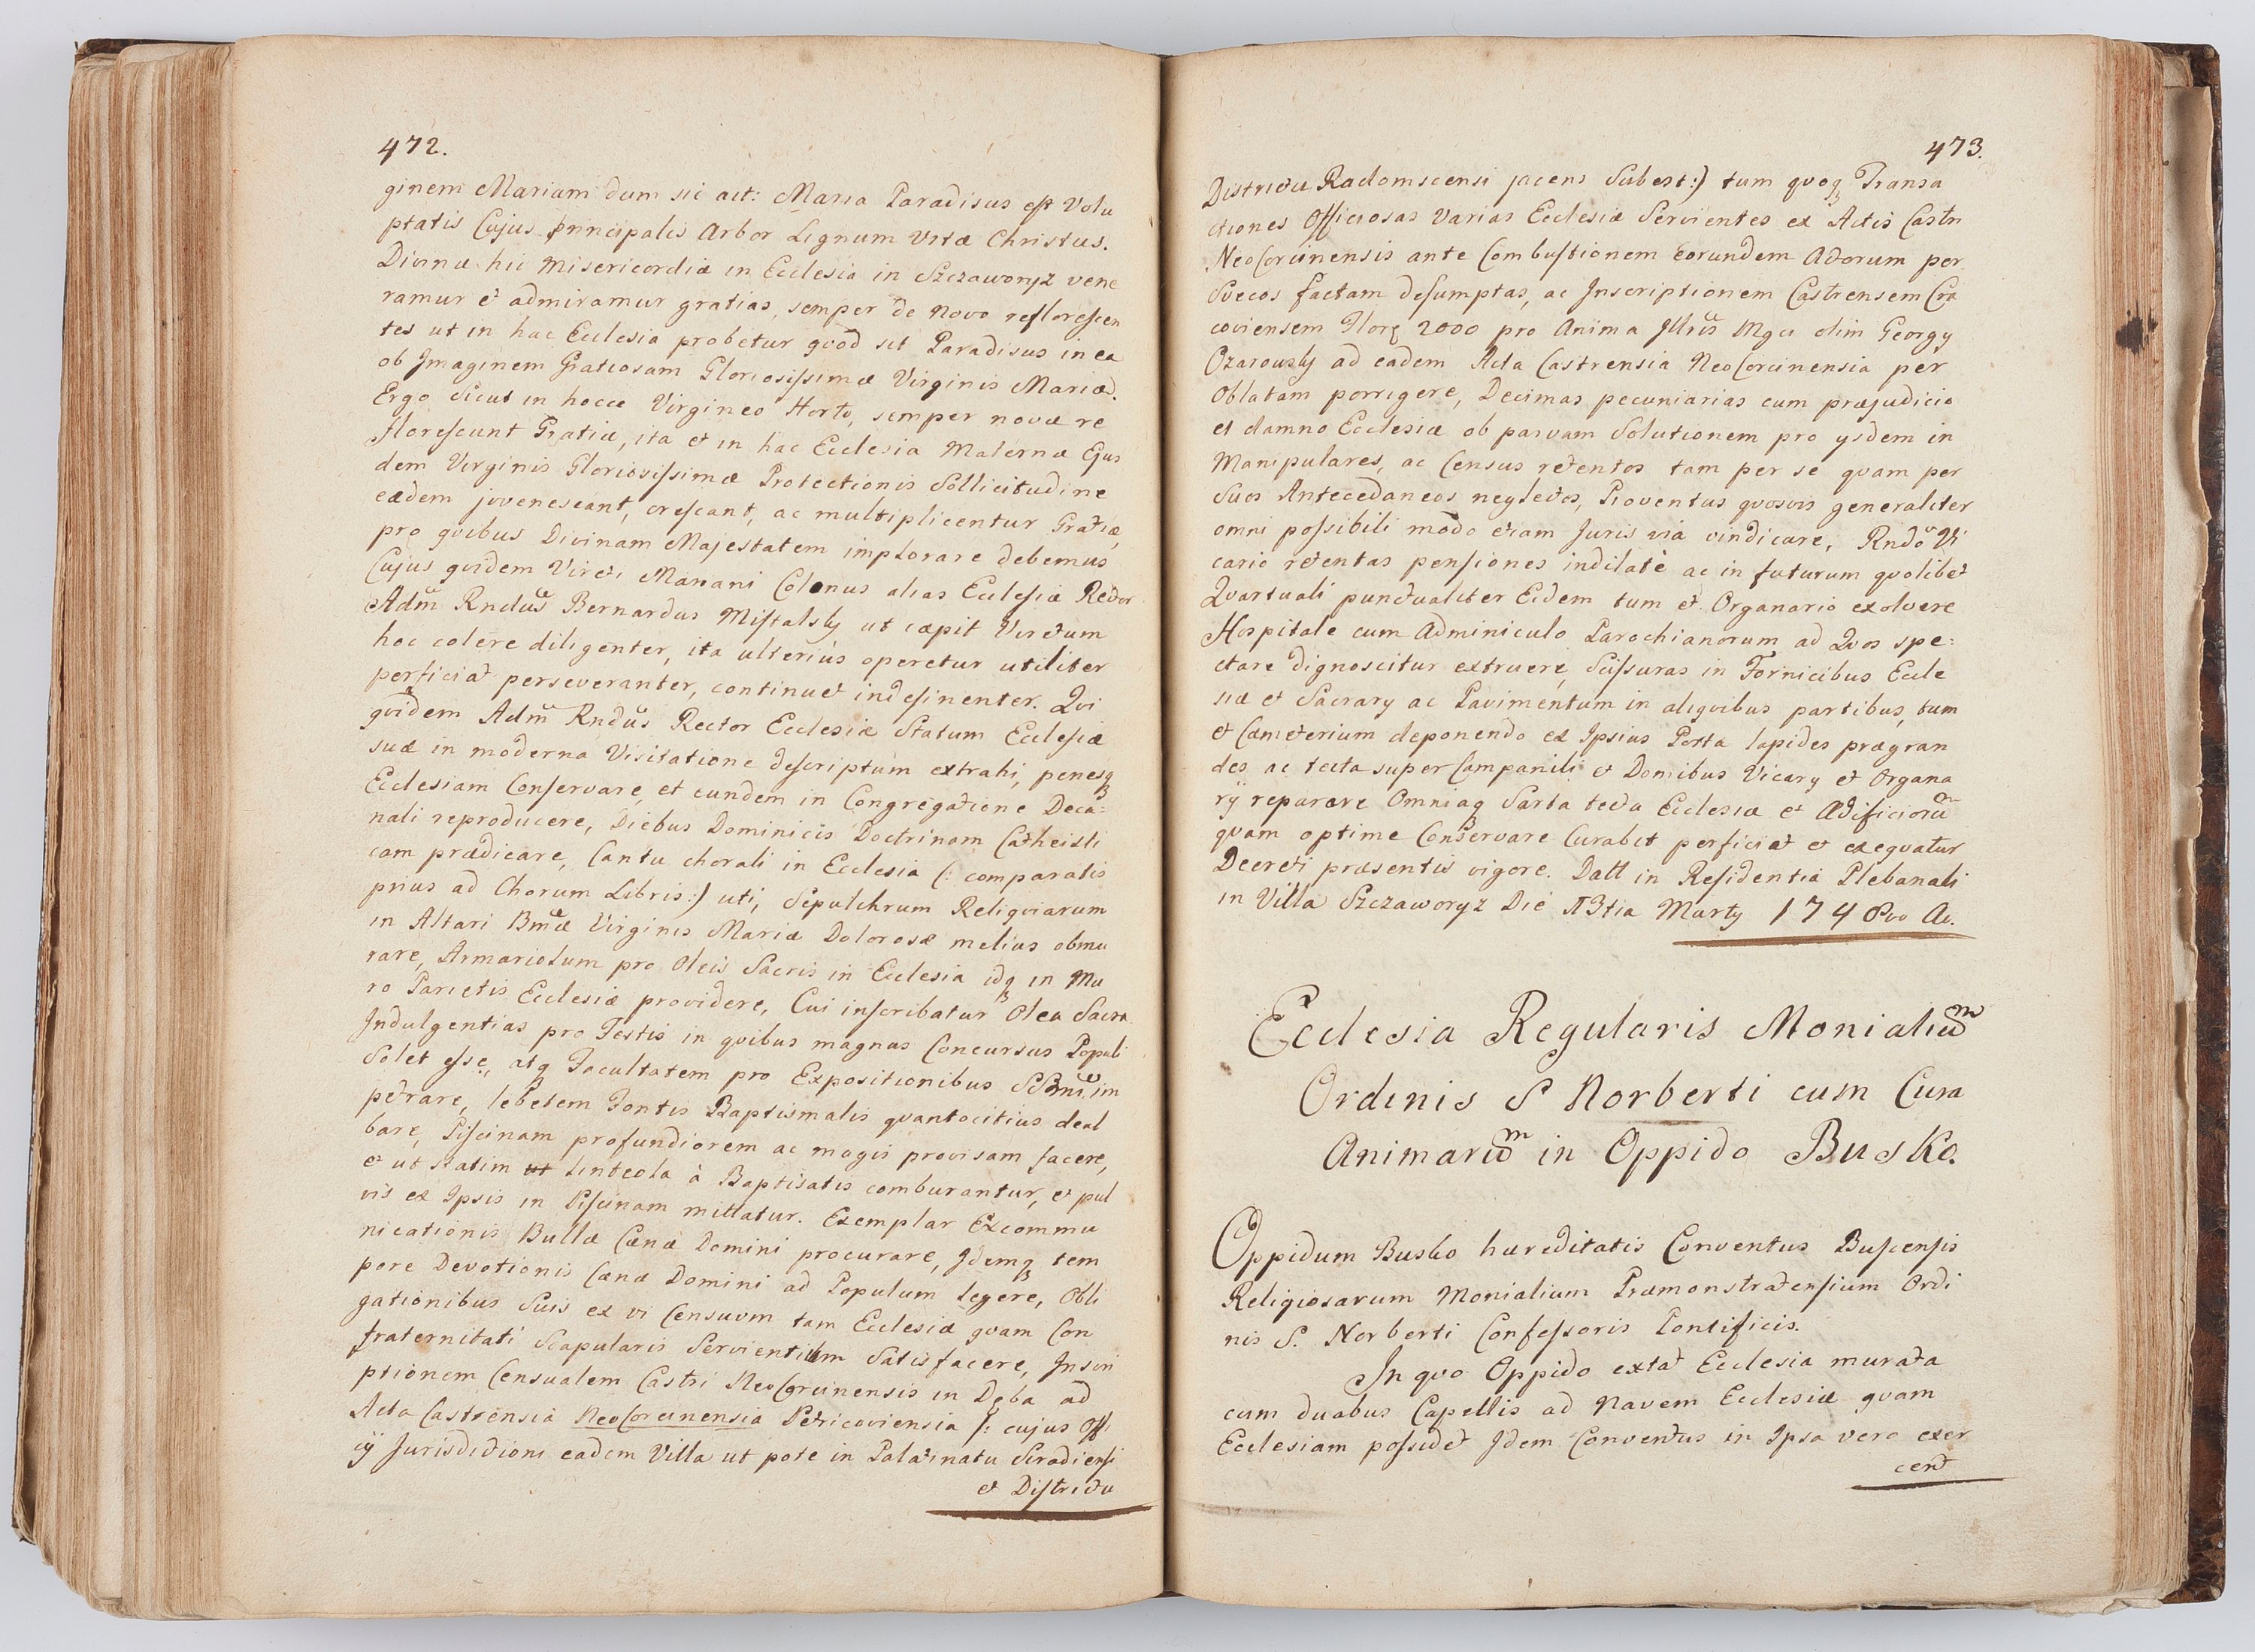 472.
ginem Mariam dum sic ait: Maria Paradisus est Volu
ptatis Cujus principalis Arbor Lignum Vitæ Christus.
Divinæ hic Misericordiæ in Ecclesia in Szczaworyz vene
ramur et admiramur gratias, semper de novo reflorescen
tes ut in hac Ecclesia probetur qvod sit Paradisus in ea
ob Imaginem Gratiosam Gloriosissimæ Virginis Mariæ.
Ergo sicut in hocce Virgineo Horto, semper novæ re
florescunt Gratiæ, ita et in hac Ecclesia Maternæ Ejus
dem Virginis Gloriosissimæ Protectionis Sollicitudine
eædem jvvenescant, crescant, ac multiplicentur Gratiæ,
pro qvibus Divinam Majestatem implorare debemus
Cujus qvidem Vireti Mariani Colonus alias Ecclesiæ Rector
Adm Rndus Bernardus Mistalsky ut cæpit Viretum
hoc colere diligenter, ita ulterius operetur utiliter
perficiat perseveranter, continuet indesinenter. Qvi
qvidem Adm Rndus Rector Ecclesiæ Statum Ecclesiæ
suæ in moderna Visitatione descriptum extrahi, penesq
Ecclesiam Conservare, et eundem in Congregatione Deca=
nali reproducere, Diebus Dominicis Doctrinam Catheisti
cam prædicare, Cantu chorali in Ecclesia (: comparatis
prius ad Chorum Libris:) uti, Sepulchrum Religviarum
in Altari Bmæ Virginis Mariæ Dolorosæ melius obmu
rare, Armariolum pro Oleis Sacris in Ecclesia idq in Mu
ro Parietis Ecclesiæ providere, Cui inscribatur Olea Sacra
Indulgentias pro Festis in qvibus magnus Concursus Populi
Solet esse, atq Facultatem pro Expositionibus SSmi im
petrare, lebetem Fontis Baptismalis qvantocitius deal
bare, Piscinam profundiorem ac magis provisam facere,
et ut statim ut linteola à Baptisatis comburantur, et pul
vis ex Ipsis in Piscinam mittatur. Exemplar Excommu
nicationis Bullæ Cænæ Domini procurare, Idemq tem
pore Devotionis Cænæ Domini ad Populum legere, Obli
gationibus Suis ex vi Censuum tam Ecclesiæ qvam Con
fraternitati Scapularis Servientium Satisfacere, Inscri
ptionem Censualem Castri NeoCorcinensis in Dęba ad
Acta Castrensia NeoCorcinensia Petricoviensia (: cujus Offi
cÿ Jurisdictioni eadem Villa ut pote in Palatinatu Siradiensi
et Districtu
473.
Districtu Radomscensi jacens Subest:) tum qvoq Transa
ctiones Officiosas Varias Ecclesiæ Servientes ex Actis Castri
NeoCorcinensis ante Combustionem Eorundem Actorum per
Svecos factam desumptas, ac Inscriptionem Castrensem Cra
coviensem Flor 2000 pro Anima Illris Mgci olim Georgy
Ozarowsky ad eadem Acta Castrensia NeoCorcinensia per
Oblatam porrigere, Decimas pecuniarias cum præjudicio
et damno Ecclesiæ ob parvam Solutionem pro ysdem in
Manipulares, ac Census retentos tam per se qvam per
Suos Antecedaneos neglectos, Proventus qvosvis generaliter
omni possibili modo etiam Juris via vindicare, Rndo Vi
cario retentas pensiones indilatè ac in futurum qvolibet
Qvartuali punctualiter Eidem tum et Organario exolvere
Hospitale cum Adminiculo Parochianorum ad Qvos spe=
ctare dignoscitur extruere, Scissuras in Fornicibus Eccle
siæ et Sacrary ac Pavimentum in aliqvibus partibus, tum
et Cæmeterium deponendo ex Ipsius Porta lapides prægran
des ac tecta super Campanili et Domibus Vicary et Organa
rÿ reparare Omniaq Sarta tecta Ecclesiæ et Ædificioru
qvam optime Conservare Curabit perficiat et exeqvatur
Decreti præsentis vigore. Datt in Residentia Plebanali
in Villa Szczaworyz Die Marty
Ecclesia Regularis Monialium
Ordinis S Norberti cum Cura
Animarum in Oppido Busko.
Oppidum Busko hæreditatis Conventus Buscensis
Religiosarum Monialium Præmonstratensium Ordi
nis S. Norberti Confessoris Pontificis.
In qvo Oppido extat Ecclesia murata
cum duabus Capellis ad Navem Ecclesiæ qvam
Ecclesiam possidet Idem Conventus in Ipsa vero exer
cent